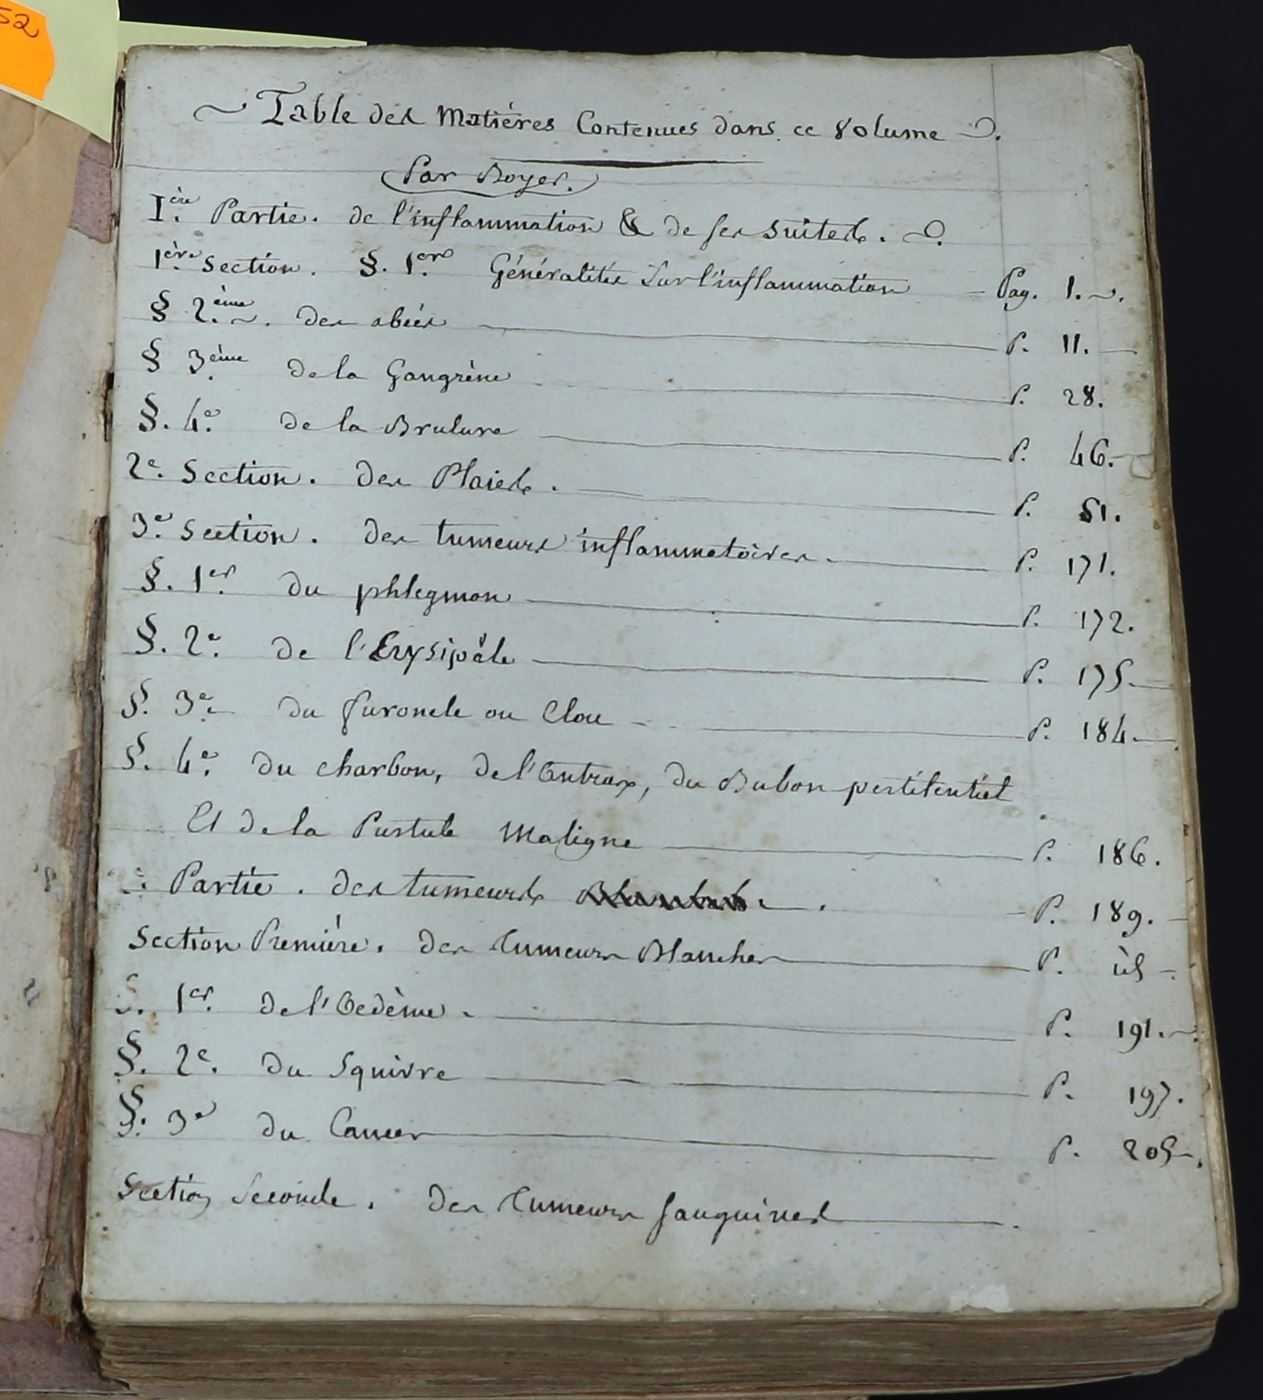 52
Table des Matiéres Contenues dans ce Volume
Par Boyer.
Ière Partie. de l'inflammation & de ses suites.
1ère Section. §. 1er Généralités Sur l'inflammation Pag. 1.
§ 2.ème des abcés P. 11.
§ 3ème de la Gangrène P. 28.
§. 4e. de la Brulure P. 46.
2e. Section. des Plaies. P. 51.
3e. Section. des tumeurs inflammatoires. P. 171.
§. 1er. du phlegmon P. 172.
§. 2e. de l'Erysipéle P. 175.
§. 3e. du furoncle ou Clou P. 184.
§. 4e. du charbon, de l'Antrax, du Bubon pestilentiel
Et de la Pustule Maligne P. 186.
Partie. des tumeurs P. 189.
Section Premiére. des Tumeurs Blanches P. id
§. 1er. de l'Oedème. P. 191.
§. 2e. du Squirre P. 197.
§. 3e du Cancer P. 205.
Section Seconde. des Tumeurs Sanguines